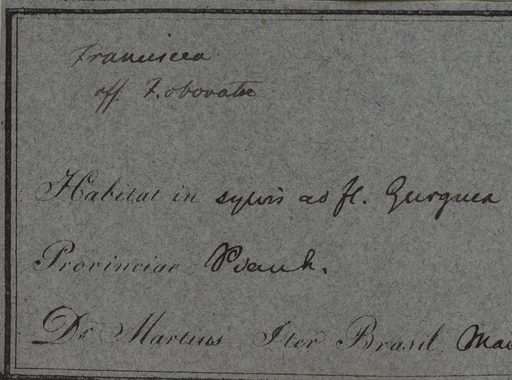 Franciscea
aff. F. obovatae
Habitat in sylvis ad fl. Gurguea
Provinciae Piauh.
Dr. Martius Iter Brasil. Mai